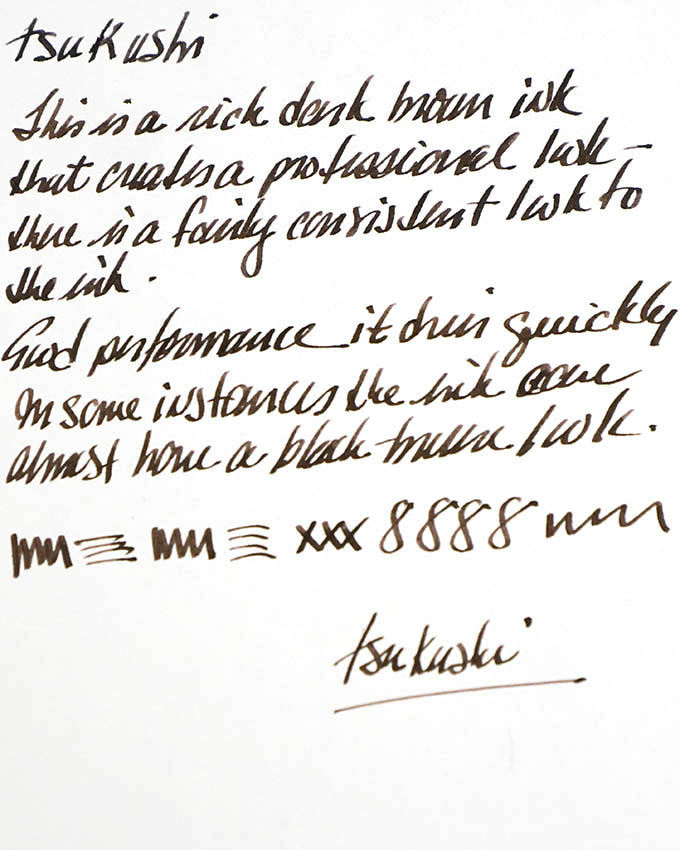 tsuKushi
This is a rich dark brown ink
that creates a professional look –
there is a fairly consistent look to
the ink.
Good performance it dries quickly
In some instances the ink can
almost have a black brown look.
xxx 8888
tsuKushi